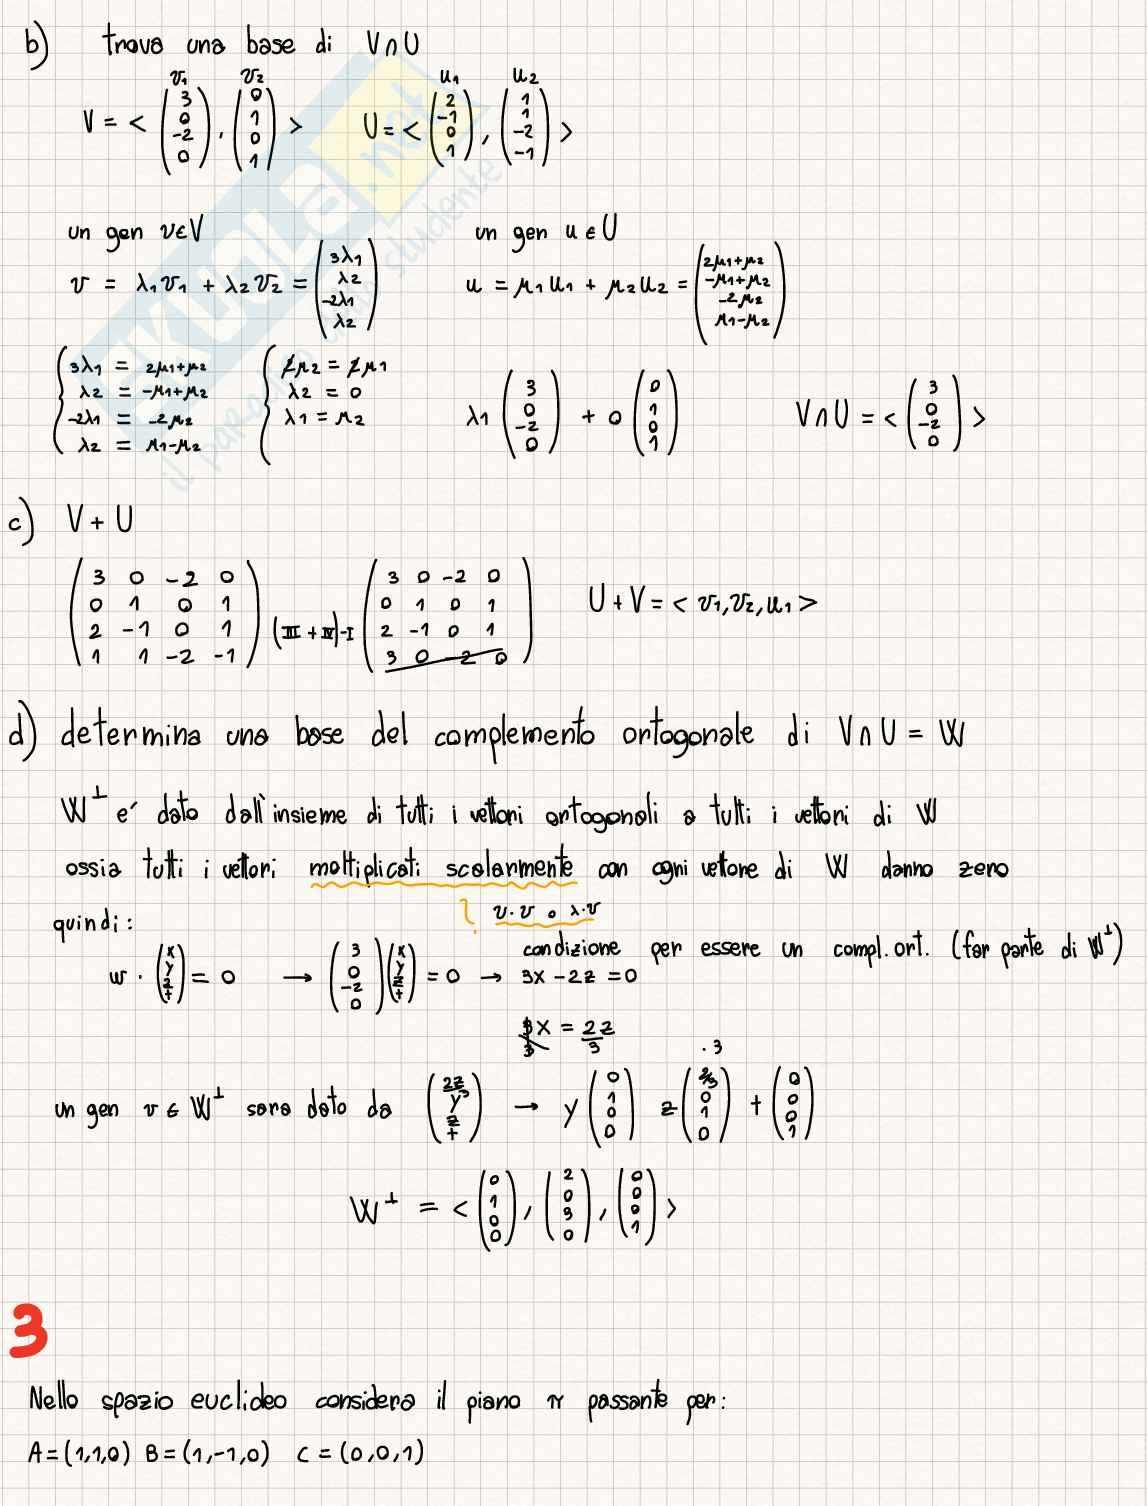 b) trova una base di V∩U
V = < v₁ (3 0 -2 0), v₂ (0 1 0 1) > U = < u₁ (2 -1 0 1), u₂ (1 1 -2 -1) >
un gen v∈V un gen u∈U
v = λ₁v₁ + λ₂v₂ = (3λ₁ λ₂ -2λ₁ λ₂) u = μ₁u₁ + μ₂u₂ = (2μ₁+μ₂ -μ₁+μ₂ -2μ₂ μ₁-μ₂)
{ 3λ₁ = 2μ₁+μ₂ { 2μ₂ = 2μ₁
λ₂ = -μ₁+μ₂ λ₂ = 0
-2λ₁ = -2μ₂ λ₁ = μ₂
λ₂ = μ₁-μ₂
λ₁ (3 0 -2 0) + 0 (0 1 0 1) V∩U = < (3 0 -2 0) >
c) V + U
3 0 -2 0
0 1 0 1
2 -1 0 1
1 1 -2 -1
(III + IV)-I
3 0 -2 0
0 1 0 1
2 -1 0 1
3 0 -2 0
U + V = < v₁, v₂, u₁ >
d) determina una base del complemento ortogonale di V∩U = W
W⊥ e' dato dall'insieme di tutti i vettori ortogonali a tutti i vettori di W
ossia tutti i vettori moltiplicati scalarmente con ogni vettore di W danno zero
? v·v o λ·v
quindi:
condizione per essere un compl. ort. (far parte di W⊥)
w · (x y z t) = 0 → (3 0 -2 0)(x y z t) = 0 → 3x - 2z = 0
3x/3 = 2z/3
· 3
un gen v ∈ W⊥ sara dato da (2z/3 y z t) → y (0 1 0 0) z (2/3 0 1 0) + (0 0 0 1)
W⊥ = < (0 1 0 0), (2 0 3 0), (0 0 0 1) >
3
Nello spazio euclideo considera il piano π passante per:
A = (1,1,0) B = (1,-1,0) C = (0,0,1)
SKUOLA.net